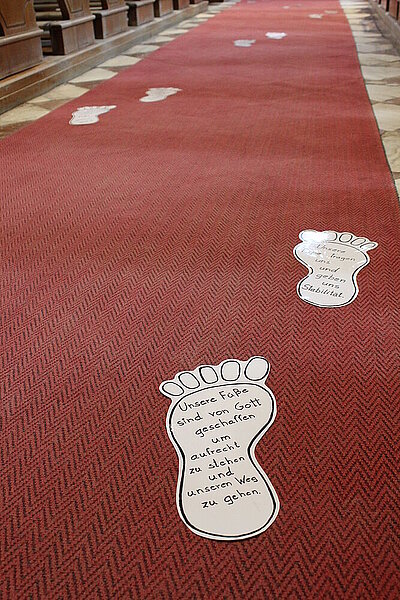 Unsere Füße
sind von Gott
geschaffen
um
aufrecht
zu stehen
und
unseren Weg
zu gehen.
Unsere
tragen
uns
und
geben
uns
Stabilität.